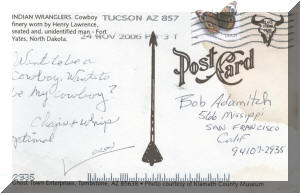 INDIAN WRANGLERS. Cowboy
finery worn by Henry Lawrence,
seated and, unidentified man - Fort
Yates, North Dakota.
TUCSON AZ 857
24 NOV 2006 PM 3 T
Post Card
Want to be a
Cowboy. Want to
be My cowboy?
Chaps & Whip
optional
Bob Adamitch
566 Missippi
SAN FRANCISCO
Calif
94107-2935
2935
Ghost Town Enterprises, Tombstone, AZ 85638 • Photo courtesy of Klamath County Museum